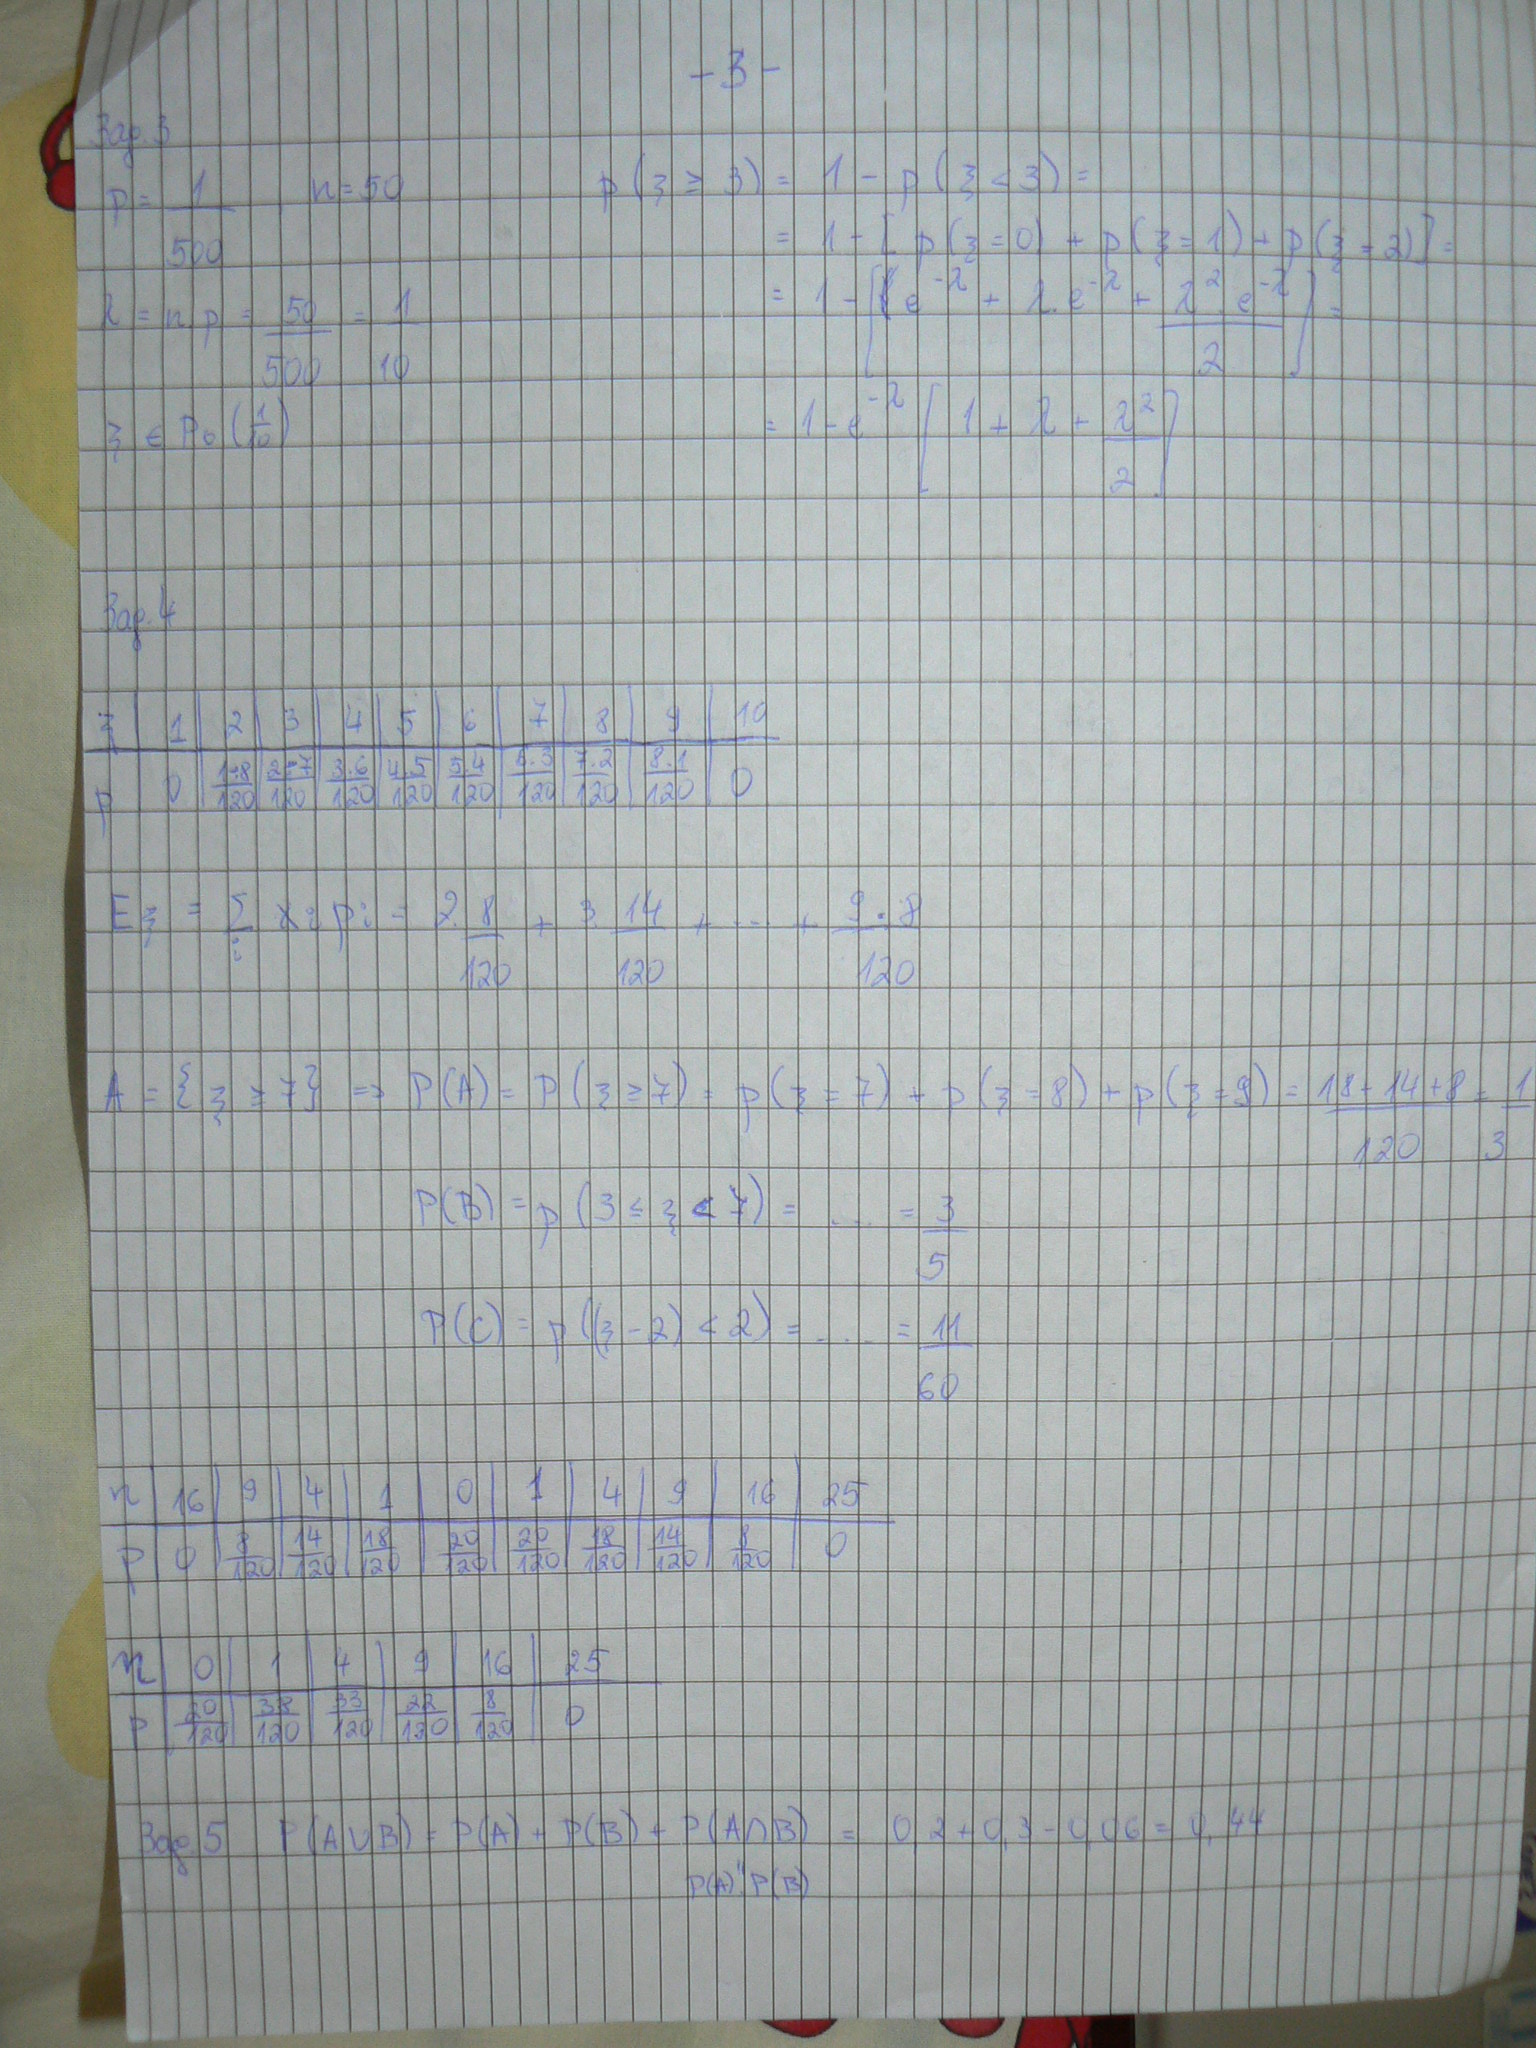 - 3 -
Зад. 3
p = 1/500 , n = 50
λ = n p = 50/500 = 1/10
ξ ∈ Po (1/10)
p (ξ ≥ 3) = 1 - p (ξ < 3) =
= 1 - [ p (ξ = 0) + p (ξ = 1) + p (ξ = 2) ] =
= 1 - [ e^-λ + λ. e^-λ + λ² . e^-λ / 2 ] =
= 1 - e^-λ [ 1 + λ + λ²/2 ]
Зад. 4
ξ | 1 | 2 | 3 | 4 | 5 | 6 | 7 | 8 | 9 | 10
p | 0 | 1.8/120 | 2.7/120 | 3.6/120 | 4.5/120 | 5.4/120 | 6.3/120 | 7.2/120 | 8.1/120 | 0
Eξ = Σ_i xi pi = 2. 8/120 + 3. 14/120 + ... + 9.8/120
A = {ξ ≥ 7} => P(A) = P (ξ ≥ 7) = p (ξ = 7) + p (ξ = 8) + p (ξ = 9) = 18 + 14 + 8/120 = 1/3
P(B) = p (3 ≤ ξ < 7) = .... = 3/5
P(C) = p ((ξ - 2) < 2) = .... = 11/60
η | 16 | 9 | 4 | 1 | 0 | 1 | 4 | 9 | 16 | 25
p | 0 | 8/120 | 14/120 | 18/120 | 20/120 | 20/120 | 18/120 | 14/120 | 8/120 | 0
η | 0 | 1 | 4 | 9 | 16 | 25
p | 20/120 | 38/120 | 33/120 | 22/120 | 8/120 | 0
Зад. 5 P(A∪B) = P(A) + P(B) + P(A∩B) = 0,2 + 0,3 - 0,06 = 0,44
P(A) . P(B)